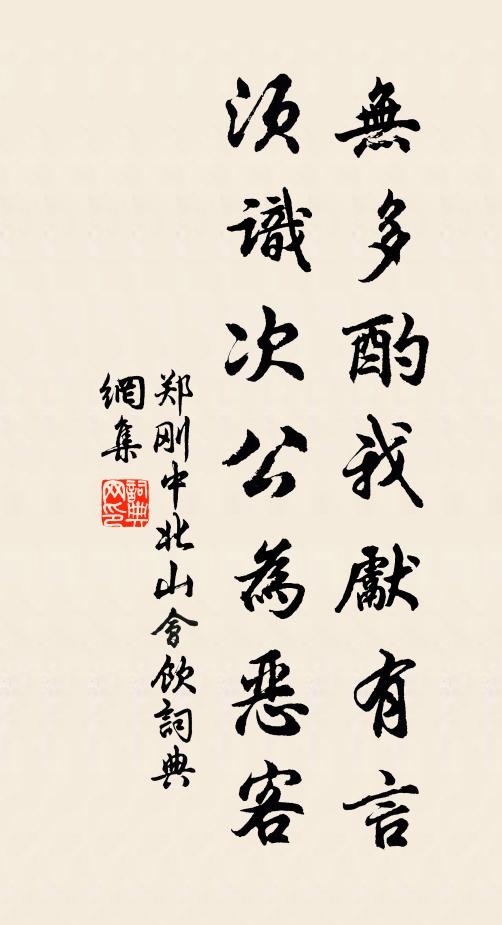 無多酌我獻有言
須識次公為惡客
郑刚中北山會飲詞典
網集
詞典網印